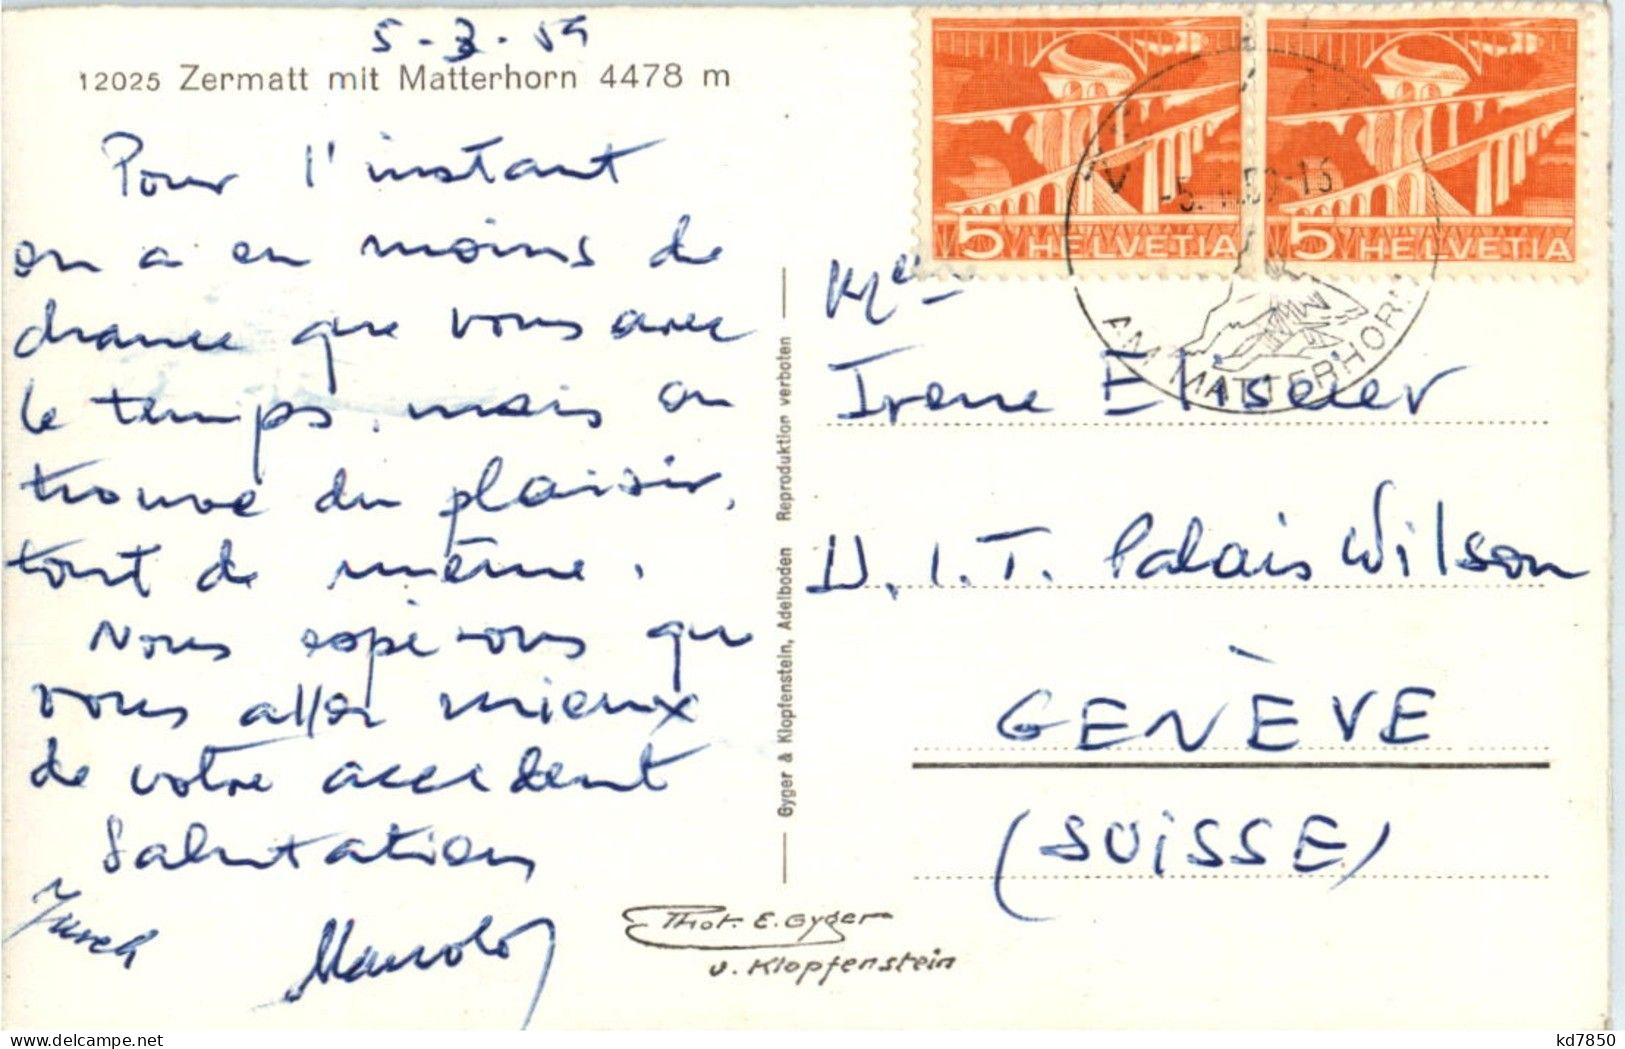 5-3-59
12025 Zermatt mit Matterhorn 4478 m
Pour l'instant
on a eu moins de
chance que vous avec
le temps, mais on
trouve du plaisir,
tout de même.
Nous espérons que
vous aller mieux
de votre accident
Salutation
Manolo
Gyger & Klopfenstein, Adelboden Reproduktion verboten
Phot. E. Gyger
u. Klopfenstein
5 HELVETIA
5 HELVETIA
AM MATTERHORN
Melle
Irene Elseler
U.I.T. Palais Wilson
GENÈVE
(SUISSE)
kd7850